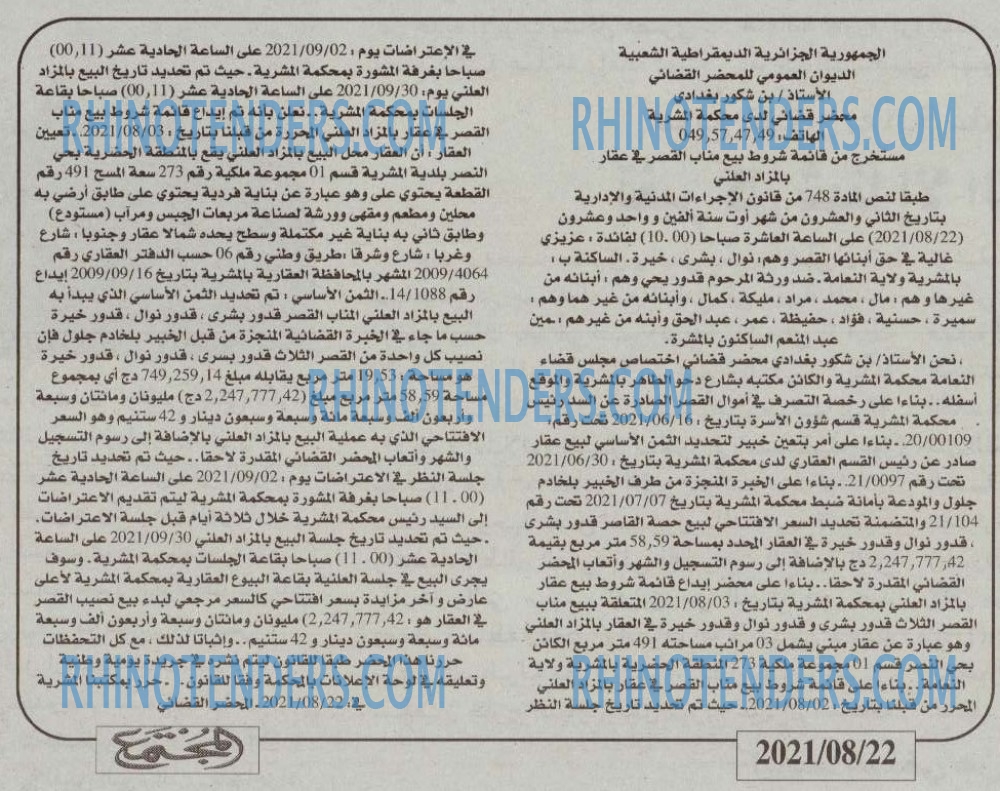 الجمهورية الجزائرية الديمقراطية الشعبية
الديوان العمومي للمحضر القضائي
الأستاذ/ بن شكور بغدادي
محضر قضائي لدى محكمة المشرية
الهاتف: 049,57,47,49
مستخرج من قائمة شروط بيع مناب القصر في عقار
بالمزاد العلني
طبقا لنص المادة 748 من قانون الإجراءات المدنية والإدارية
بتاريخ الثاني والعشرون من شهر أوت سنة ألفين و واحد وعشرون
(2021/08/22) على الساعة العاشرة صباحا (10.00) لفائدة : عزيزي
غالية في حق أبنائها القصر وهم: نوال ، بشرى ، خيرة . الساكنة ب :
بالمشرية ولاية النعامة . ضد ورثة المرحوم قدور يحي وهم : أبنائه من
غيرها و هم : مال ، محمد ، مراد ، مليكة ، كمال ، وأبنائه من غير هما وهم :
سميرة ، حسنية ، فؤاد ، حفيظة ، عمر ، عبد الحق وأبنه من غيرهم : .مين
عبد المنعم الساكنون بالمشرة .
، نحن الأستاذ/ بن شكور بغدادي محضر قضائي اختصاص مجلس قضاء
النعامة محكمة المشرية والكائن مكتبه بشارع دحو الطاهر بالمشرية والموقع
أسفله . . بناءا على رخصة التصرف في أموال القصر الصادرة عن السيد رئيس
محكمة المشرية قسم شؤون الأسرة بتاريخ : 2021/06/16 تحت رقم:
20/00109. . بناءا على أمر بتعين خبير لتحديد الثمن الأساسي لبيع عقار
صادر عن رئيس القسم العقاري لدى محكمة المشرية بتاريخ : 2021/06/30
تحت رقم 21/0097. . بناءا على الخبرة المنجزة من طرف الخبير بلخادم
جلول والمودعة بأمانة ضبط محكمة المشرية بتاريخ 2021/07/07 تحت رقم
21/104 والمتضمنة تحديد السعر الافتتاحي لبيع حصة القاصر قدور بشرى
، قدور نوال وقدور خيرة في العقار المحدد بمساحة 58,59 متر مربع بقيمة
2,247,777,42 دج بالإضافة إلى رسوم التسجيل والشهر وأتعاب المحضر
القضائي المقدرة لاحقا. . بناءا على محضر إيداع قائمة شروط بيع عقار
بالمزاد العلني بمحكمة المشرية بتاريخ : 2021/08/03 المتعلقة ببيع مناب
القصر الثلاث قدور بشرى و قدور نوال وقدور خيرة في العقار بالمزاد العلني
وهو عبارة عن عقار مبني يشمل 03 مرائب مساحته 491 متر مربع الكائن
بحي النصر قسم 01 مجموعة ملكية 273 النطقة الحضرية بالمشرية ولاية
النعامة . . بناءا على قائمة شروط بيع مناب القصر في عقار بالمزاد العلني
المحرر من قبلنا بتاريخ : 2021/08/02. . حيث تم تحديد تاريخ جلسة النظر
في الإعتراضات يوم : 2021/09/02 على الساعة الحادية عشر (00,11)
صباحا بغرفة المشورة بمحكمة المشرية . حيث تم تحديد تاريخ البيع بالمزاد
العلني يوم: 2021/09/30 على الساعة الحادية عشر (00,11) صباحا بقاعة
الجلسات بمحكمة المشرية . . نعلن بأنه تم إيداع قائمة شروط بيع مناب
القصر في عقار بالمزاد العلني المحررة من قبلنا بتاريخ : 2021/08/03. . تعيين
العقار : أن العقار محل البيع بالمزاد العلني يقع بالمنطقة الحضرية بحي
النصر بلدية المشرية قسم 01 مجموعة ملكية رقم 273 سعة المسح 491 رقم
القطعة يحتوي على وهو عبارة عن بناية فردية يحتوي على طابق أرضي به
محلين ومطعم ومقهى وورشة لصناعة مربعات الجبس ومرآب (مستودع)
وطابق ثاني به بناية غير مكتملة وسطح يحده شمالا عقار وجنوبا : شارع
وغربا : شارع وشرقا :طريق وطني رقم 06 حسب الدفتر العقاري رقم
2009/4064 المشهر بالمحافظة العقارية بالمشرية بتاريخ 2009/09/16 إيداع
رقم 14/1088. . الثمن الأساسي : تم تحديد الثمن الأساسي الذي يبدأ به
البيع بالمزاد العلني المناب القصر قدور بشرى ، قدور نوال ، قدور خيرة
حسب ما جاء في الخبرة القضائية المنجزة من قبل الخبير بلخادم جلول فإن
نصيب كل واحدة من القصر الثلاث قدور بسرى ، قدور نوال ، قدور خيرة
هو مساحة: 19,53 متر مربع يقابله مبلغ 749,259,14 دج أي بمجموع
مساحة 58,59 متر مربع مبلغ (2,247,777,42 دج) مليونان ومائتان وسبعة
وأربعون ألف وسبعة مائة وسبعة وسبعون دينار و 42 سنتيم وهو السعر
الافتتاحي الذي به عملية البيع بالمزاد العلني بالإضافة إلى رسوم التسجيل
والشهر وأتعاب المحضر القضائي المقدرة لاحقا. . حيث تم تحديد تاريخ
جلسة النظر في الاعتراضات يوم : 2021/09/02 على الساعة الحادية عشر
(11.00) صباحا بغرفة المشورة بمحكمة المشرية ليتم تقديم الاعتراضات
إلى السيد رئيس محكمة المشرية خلال ثلاثة أيام قبل جلسة الاعتراضات .
. حيث تم تحديد تاريخ جلسة البيع بالمزاد العلني 2021/09/30 على الساعة
الحادية عشر (11.00) صباحا بقاعة الجلسات بمحكمة المشرية . وسوف
يجرى البيع في جلسة العلنية بقاعة البيوع العقارية بمحكمة المشرية لأعلى
عارض و آخر مزايدة بسعر افتتاحي كالسعر مرجعي لبدء بيع نصيب القصر
في العقار هو : (2,247,777,42) مليونان ومائتان وسبعة وأربعون ألف وسبعة
مائة وسبعة وسبعون دينار و 42 سنتيم . . وإثباتا لذلك ، مع كل التحفظات
حررنا هذا المحضر طبقا للقانون ليتم نشره في جريدة يومية وطنية
وتعليقه في لوحة الإعلانات بالمحكمة وفقا للقانون . . حرر بمكتبنا المشرية
في : 2021/08/22. المحضر القضائي
المجتمع
2021/08/22
RHINOTENDERS.COM
RHINOTENDERS.COM
RHINOTENDERS.COM
RHINOTENDERS.COM
RHINOTENDERS.COM